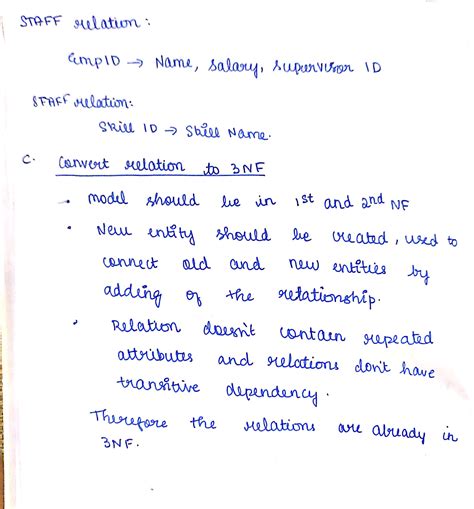 STAFF relation :
EmpID → Name, Salary, Supervisor ID
STAFF relation:
Skill ID → Skill Name.
C. Convert relation to 3NF
• model should be in 1st and 2nd NF
• New entity should be created, used to
connect old and new entities by
adding of the relationship.
• Relation doesn't contain repeated
attributes and relations don't have
transitive dependency.
Therefore the relations are already in
3NF.